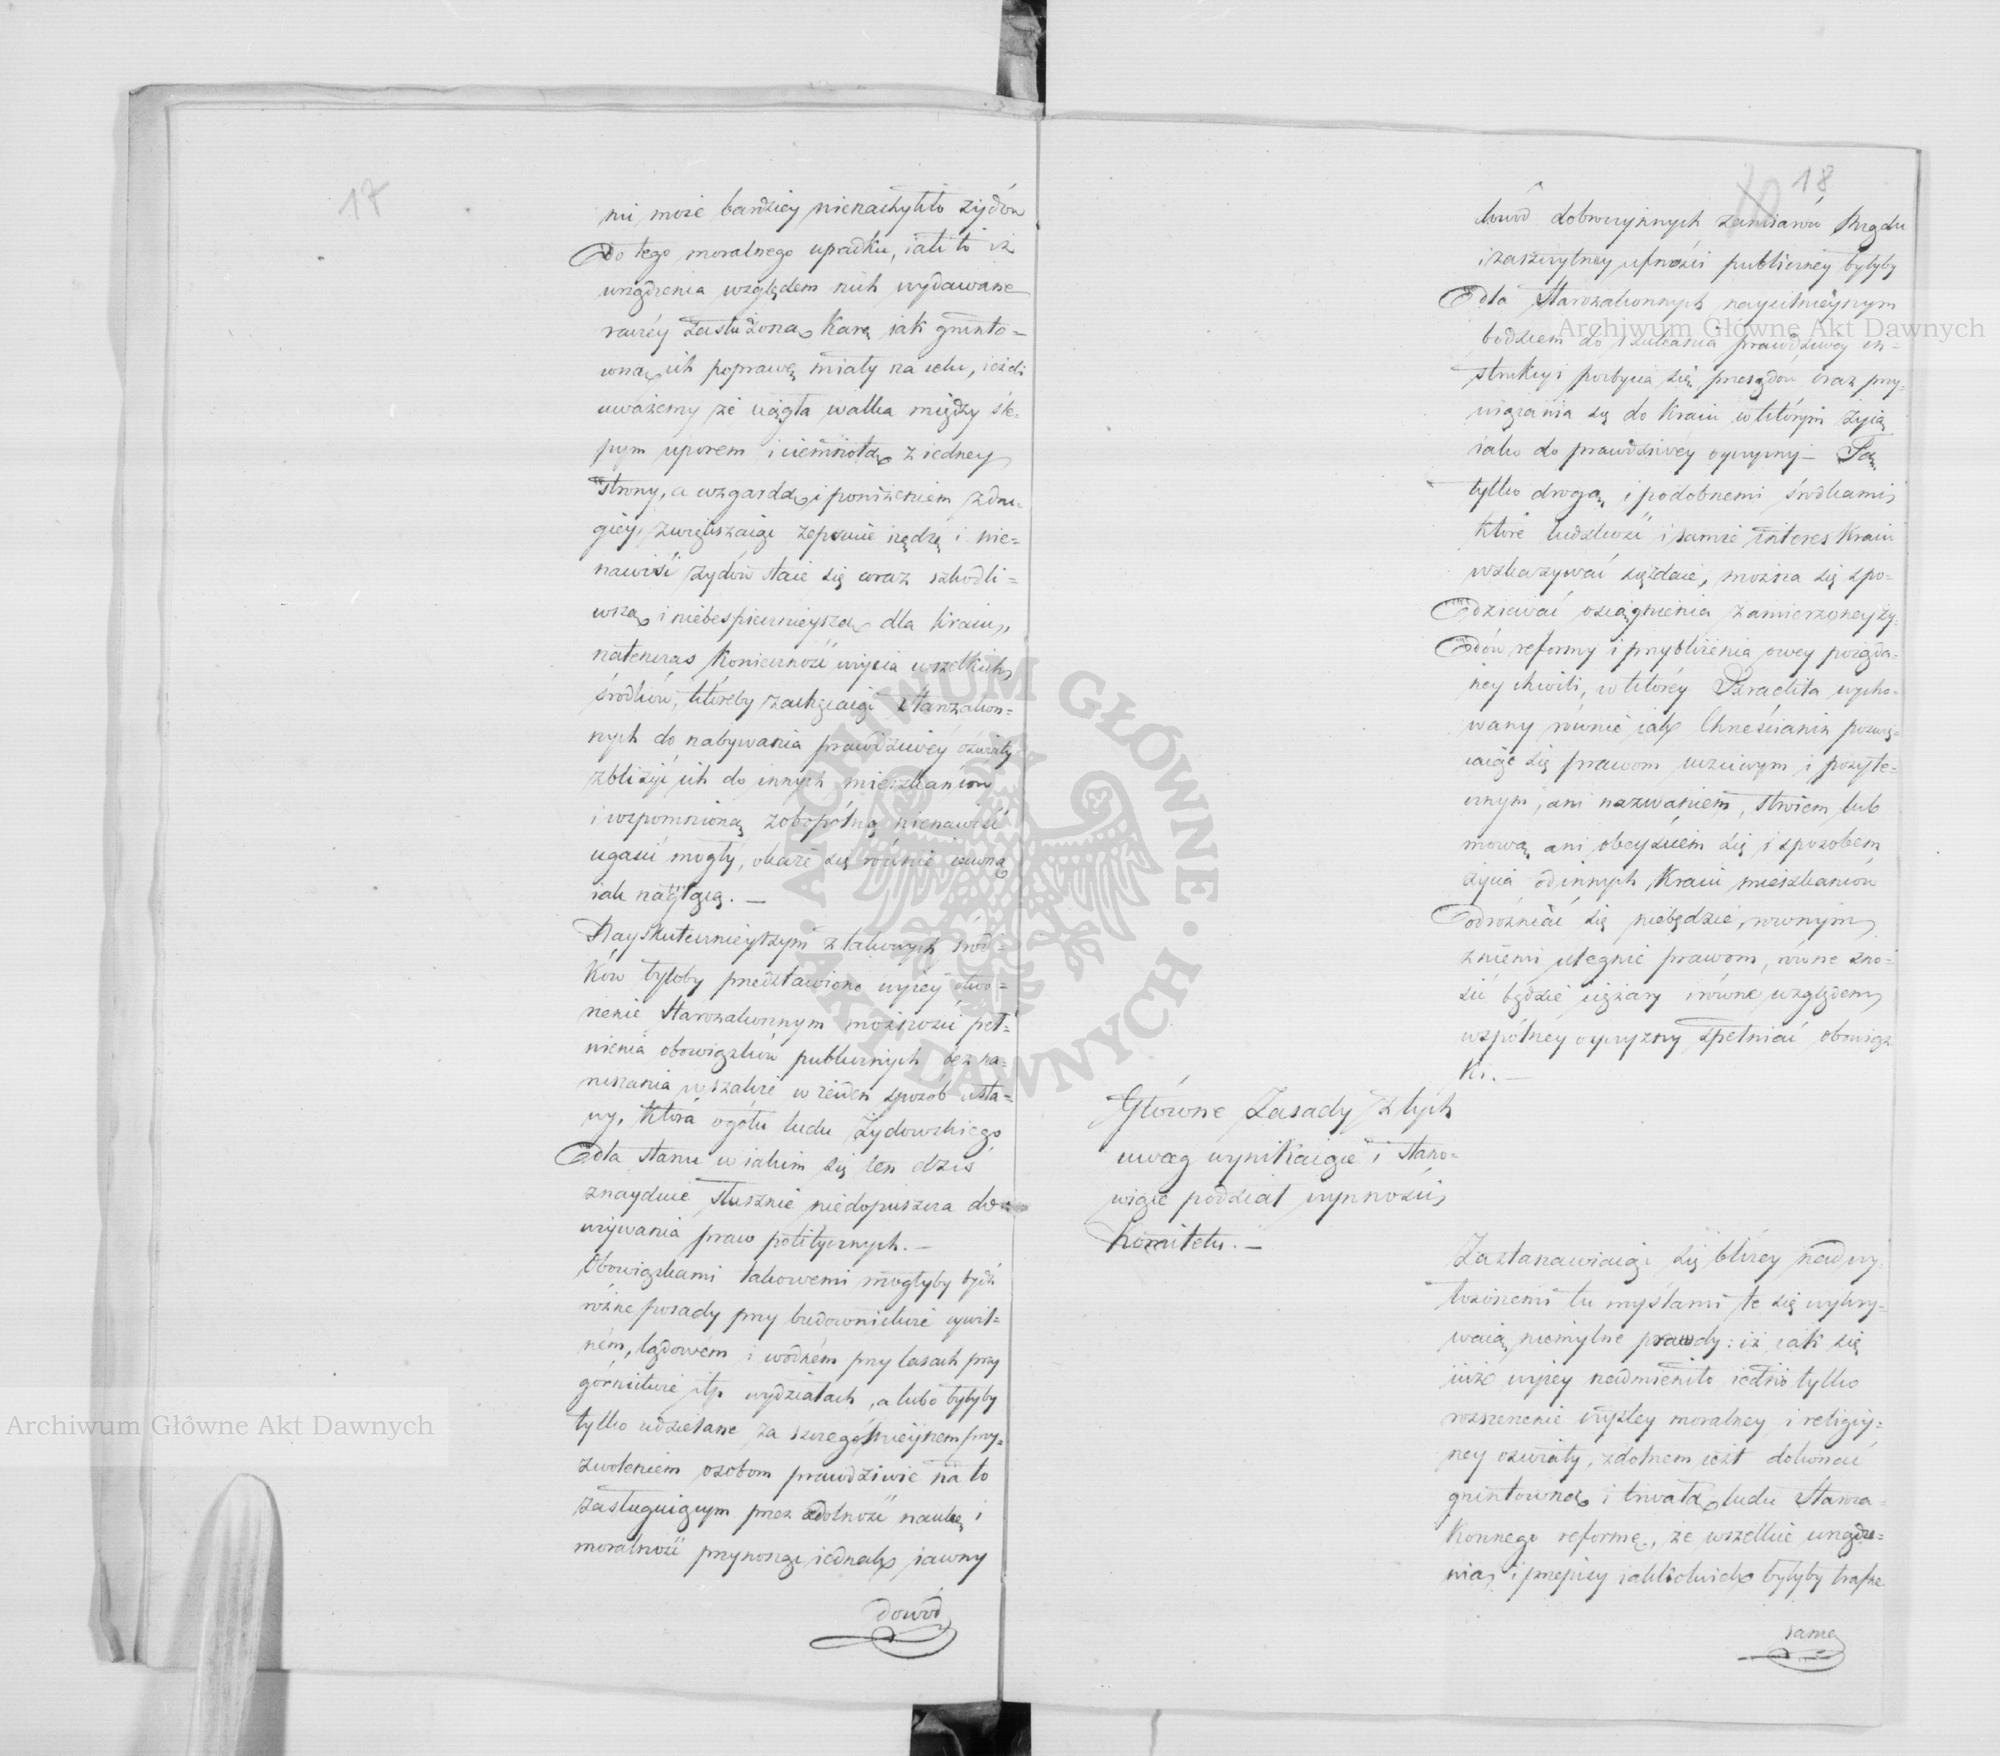 17
ni może bardziey nienachyliło żydów
do tego moralnego upadku, iak to iż
urządzenia względem nich wydawane
raczéy zasłużoną karę iak grunto-
wną ich poprawę miały na celu, ieżeli
uważemy że ciągła walka między śle-
pym uporem i ciemnotą z iedney
strony, a wzgardą i poniżeniem z dru-
giéy, zwiększaiąc zepsucie nędzę i nie-
nawiść żydów staie się coraz szkodli-
wszą i niebespiecznieyszą dla Kraiu,
natenczas konieczność użycia wszelkich
środków, któreby zachęcaiąc starozakon-
nych do nabywania prawdziwéy oświaty
zbliżyć ich do innych mieszkańców
i wspomnioną zobopólną nienawiść
ugasić mogły, okaże się równie iawną
iak nagłącą. —
Nayskutecznieyszym z takowych środ-
ków byłoby przedstawione wyżey otwo-
rzenie Starozakonnym możności peł-
nienia obowiązków publicznych bez na-
ruszania wszakże w żeiden sposób usta-
wy, która ogółu ludu Żydowskiego
dla stanu w iakim się ten dziś
znayduie słusznie niedopuszcza do
używania praw politycznych. —
Obowiązkami takowemi mogłyby bydź
różne posady przy budownictwie cywil-
ném, lądowém i wodném przy lasach przy
górnictwie itp. wydziałach, a lubo byłyby
tylko udzielane za szczególnieyszem przy-
zwoleniem osobom prawdziwie na to
zasługuiącym przez zdolność naukę i
moralność przynosząc iednak iawny
dowód
18
dowód dobroczynnych zamiarów Rządu
i zaszczytney ufności publiczney byłyby
dla Starozakonnych naysilnieyszym
bodzcem do szukania prawdziwey in-
strukcyi pozbycia się przesądów, oraz przy-
wiązania się do Kraiu w którym żyią
iako do prawdziwéy oyczyzny — Tą
tylko drogą i podobnemi środkami,
które ludzkość i samże interes Kraiu
wskazywać się zdaie, można się spo-
dziewać osiągnienia zamierzoney ży-
dów reformy i przybliżenia owey pożąda-
ney chwili, w któréy Izraelita wycho-
wany równie iak Chrześcianin poświę-
caiąc się pracom uczciwym i pożyte-
cznym, ani nazwaniem, stroiem lub
mową ani obeyściem się i sposobem
życia od innych Kraiu mieszkańców
odróżniać się niebędzie, rownym
z niemi ulegnie prawom, równe zno-
sić będzie ciężary i równe względem
wspólney oyczyzny spełniać obowiąz-
ki. —
Główne Zasady z tych
uwag wynikaiące i stano-
wiące podział czynności
Komitetu. —
Zastanawiaiąc się bliżey nad wy-
łożonemi tu myślami te się wykry-
waią niemylne prawdy: iż iak się
iuż wyżey nadmieniło iedno tylko
rozszerzenie czystey moralney i religiy-
ney oświaty, zdolnem iest dokonać
gruntowną i trwałą ludu Staroza-
konnego reformę, że wszelkie urządze-
nia i przepisy iakkolwiek byłyby trafne
same
Archiwum Główne Akt Dawnych
Archiwum Główne Akt Dawnych
ARCHIWUM GŁÓWNE AKT DAWNYCH